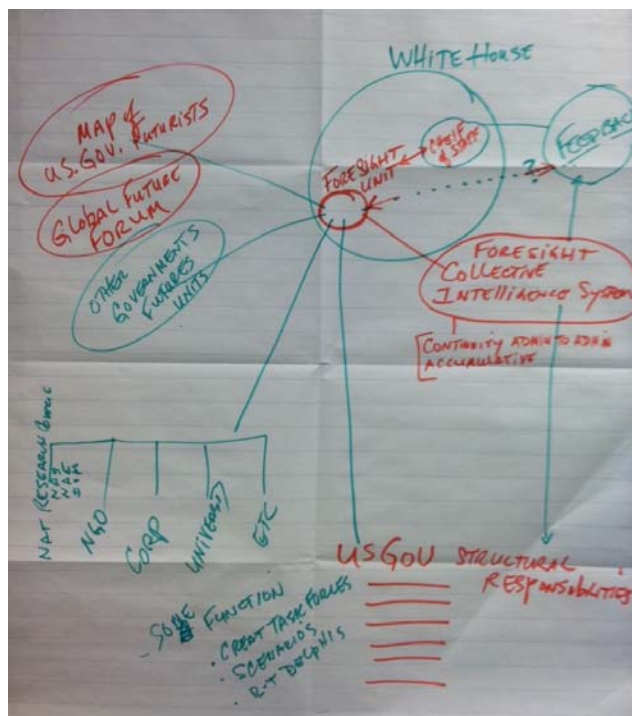 WHITE HOUSE
MAP of
U.S. GOV. FUTURISTS
GLOBAL FUTURE
FORUM
OTHER
GOVERNMENTS
FUTURES
UNITS
FORESIGHT
UNIT
CHIEF
of STAFF
?
FEEDBACK
FORESIGHT
COLLECTIVE
INTELLIGENCE SYSTEM
CONTINUITY ADMIN TO ADMIN
ACCUMULATIVE
NAT RESEARCH
NAS
NAE
IOM
NGO
CORP
UNIVERS
ETC
US GOV
STRUCTURAL
RESPONSIBILITIES
- SOME FUNCTION
• CREAT TASK FORCES
• SCENARIOS
• R-T DELPHIS